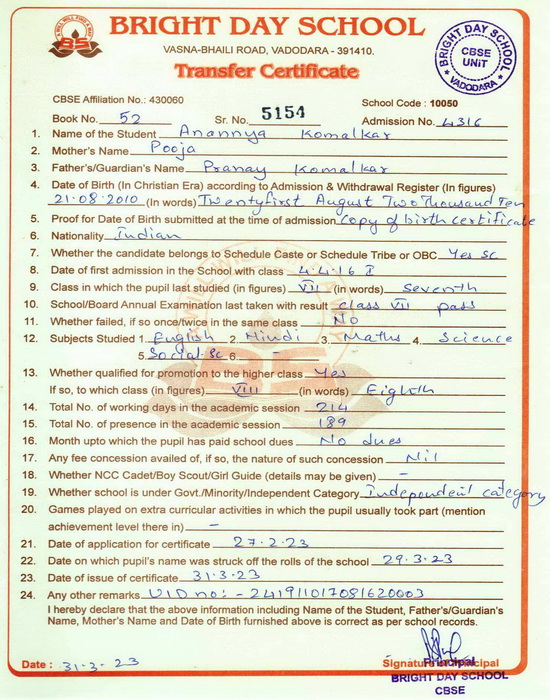 BRIGHT DAY SCHOOL
VASNA-BHAILI ROAD, VADODARA - 391410.
Transfer Certificate
BRIGHT DAY SCHOOL
CBSE
UNIT
VADODARA
CBSE Affiliation No.: 430060
School Code : 10050
Book No. 52 Sr. No. 5154 Admission No. 4316
1. Name of the Student Anannya Komalkar
2. Mother's Name Pooja
3. Father's/Guardian's Name Pranay Komalkar
4. Date of Birth (In Christian Era) according to Admission & Withdrawal Register (In figures)
21.08.2010 (In words) Twentyfirst August Two Thousand Ten
5. Proof for Date of Birth submitted at the time of admission Copy of birth certificate
6. Nationality Indian
7. Whether the candidate belongs to Schedule Caste or Schedule Tribe or OBC Yes SC
8. Date of first admission in the School with class 4.4.16 I
9. Class in which the pupil last studied (in figures) VII (in words) Seventh
10. School/Board Annual Examination last taken with result class VII pass
11. Whether failed, if so once/twice in the same class No
12. Subjects Studied 1. English 2. Hindi 3. Maths 4. Science
5. Social. Sc 6. -
13. Whether qualified for promotion to the higher class Yes
If so, to which class (in figures) VIII (in words) Eighth
14. Total No. of working days in the academic session 214
15. Total No. of presence in the academic session 189
16. Month upto which the pupil has paid school dues No dues
17. Any fee concession availed of, if so, the nature of such concession Nil
18. Whether NCC Cadet/Boy Scout/Girl Guide (details may be given) -
19. Whether school is under Govt./Minority/Independent Category Independent category
20. Games played on extra curricular activities in which the pupil usually took part (mention
achievement level there in) -
21. Date of application for certificate 27.2.23
22. Date on which pupil's name was struck off the rolls of the school 29.3.23
23. Date of issue of certificate 31.3.23
24. Any other remarks UID no:- 241911017081620003
I hereby declare that the above information including Name of the Student, Father's/Guardian's
Name, Mother's Name and Date of Birth furnished above is correct as per school records.
Date : 31-3-23
Signature Principal
Principal
BRIGHT DAY SCHOOL
CBSE